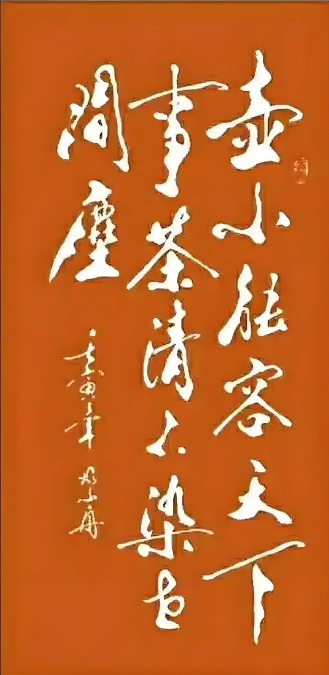 壶小能容天下
事茶清不染世
間塵
寅年